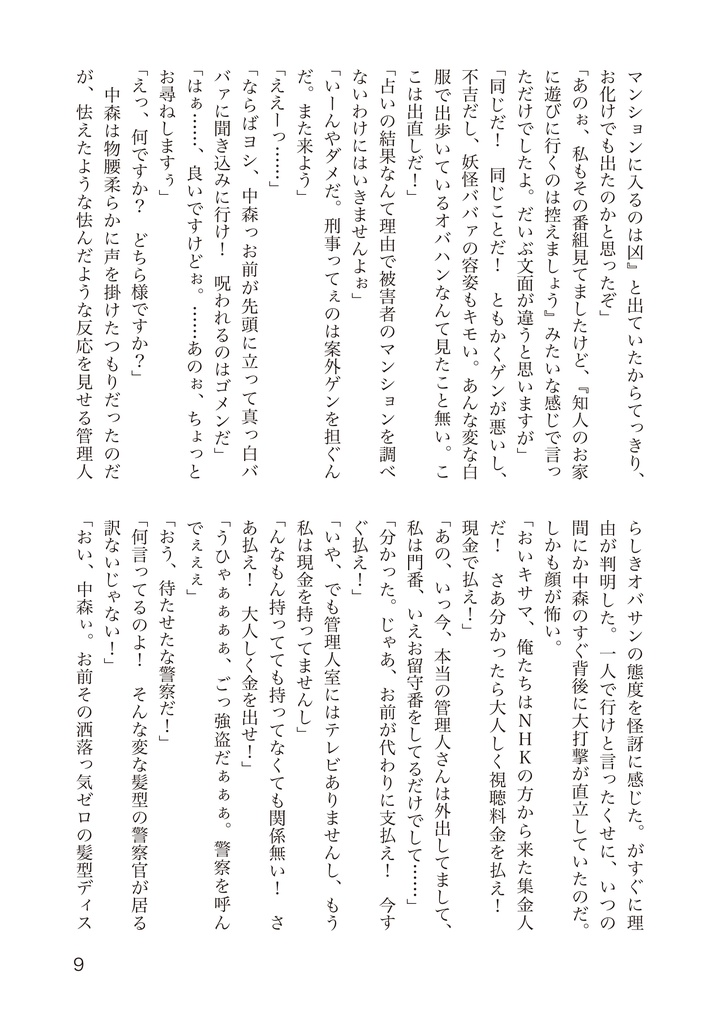 マンションに入るのは凶』と出ていたからてっきり、
お化けでも出たのかと思ったぞ」
「あのぉ、私もその番組見てましたけど、『知人のお家
に遊びに行くのは控えましょう』みたいな感じで言っ
ただけでしたよ。だいぶ文面が違うと思いますが」
「同じだ！　同じことだ！　ともかくゲンが悪いし、
不吉だし、妖怪ババァの容姿もキモい。あんな変な白
服で出歩いているオバハンなんて見たこと無い。こ
こは出直しだ！」
「占いの結果なんて理由で被害者のマンションを調べ
ないわけにはいきませんよぉ」
「いーんやダメだ。刑事ってぇのは案外ゲンを担ぐん
だ。また来よう」
「ええーっ……」
「ならばヨシ、中森っお前が先頭に立って真っ白バ
バァに聞き込みに行け！　呪われるのはゴメンだ」
「はぁ……、良いですけどぉ。……あのぉ、ちょっと
お尋ねしますぅ」
「えっ、何ですか？　どちら様ですか？」
　中森は物腰柔らかに声を掛けたつもりだったのだ
が、怯えたような怯んだような反応を見せる管理人
らしきオバサンの態度を怪訝に感じた。がすぐに理
由が判明した。一人で行けと言ったくせに、いつの
間にか中森のすぐ背後に大打撃が直立していたのだ。
しかも顔が怖い。
「おいキサマ、俺たちはＮＨＫの方から来た集金人
だ！　さあ分かったら大人しく視聴料金を払え！
現金で払え！」
「あの、いっ今、本当の管理人さんは外出してまして、
私は門番、いえお留守番をしてるだけでして……」
「分かった。じゃあ、お前が代わりに支払え！　今す
ぐ払え！」
「いや、でも管理人室にはテレビありませんし、もう
私は現金を持ってませんし」
「んなもん持ってても持ってなくても関係無い！　さ
あ払え！　大人しく金を出せ！」
「うひゃぁぁぁぁ、ごっ強盗だぁぁぁ。警察を呼ん
でぇぇぇ」
「おう、待たせたな警察だ！」
「何言ってるのよ！　そんな変な髪型の警察官が居る
訳ないじゃない！」
「おい、中森ぃ。お前その洒落っ気ゼロの髪型ディス
9